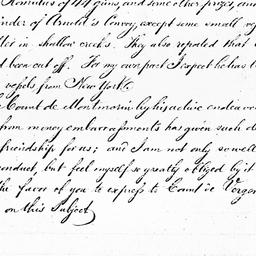 Romulus of 44 guns, and some other prizes, and
inder of Arnold's Convoy, except some small ve
ter in shallow creeks. They also reported that
d been cut off. For my own part I expect he has
vessels from New York.
Count de Mortmarin by his active endeavo
from money embarrassments has given such
friendship for us; and I am not only so well
conduct, but feel myself so greatly obliged by it
the favor of you to express to Count de Vergen
on this Subject)